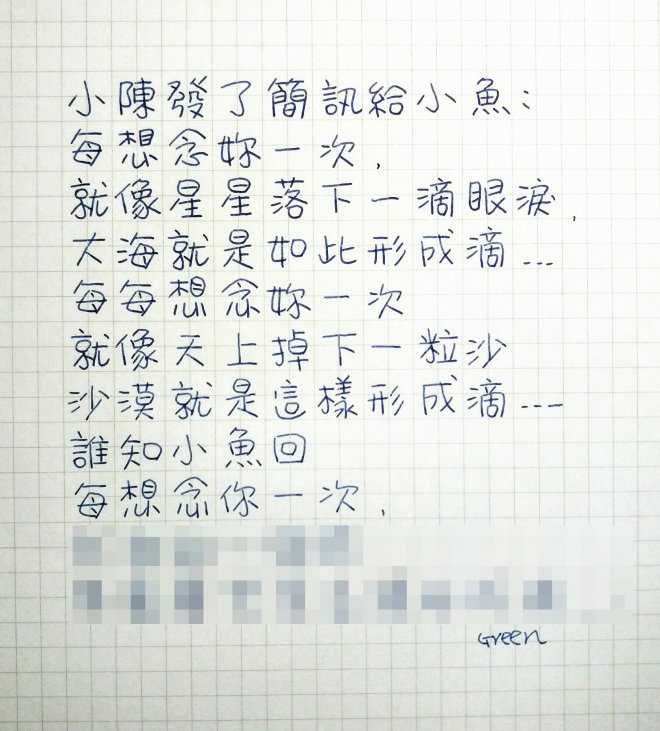 小陳發了簡訊給小魚:
每想念妳一次,
就像星星落下一滴眼淚,
大海就是如此形成滴...
每每想念妳一次
就像天上掉下一粒沙
沙漠就是這樣形成滴...
誰知小魚回
每想念你一次,
Green